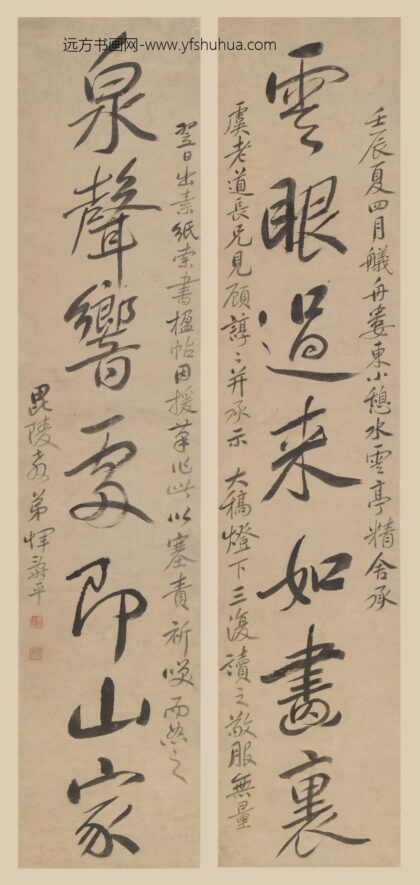 远方书画网-www.yfshuhua.com
壬辰夏四月艤舟婁東小憩水雲亭精舍承
雲眼過来如畫裏
虞老道長兄見顧諄〻并承示 大稿燈下三復讀之敬服無量
翌日出素紙索書楹帖因援筆作此以塞責祈哂而恕之
泉聲響處即山家
毘陵教弟惲壽平